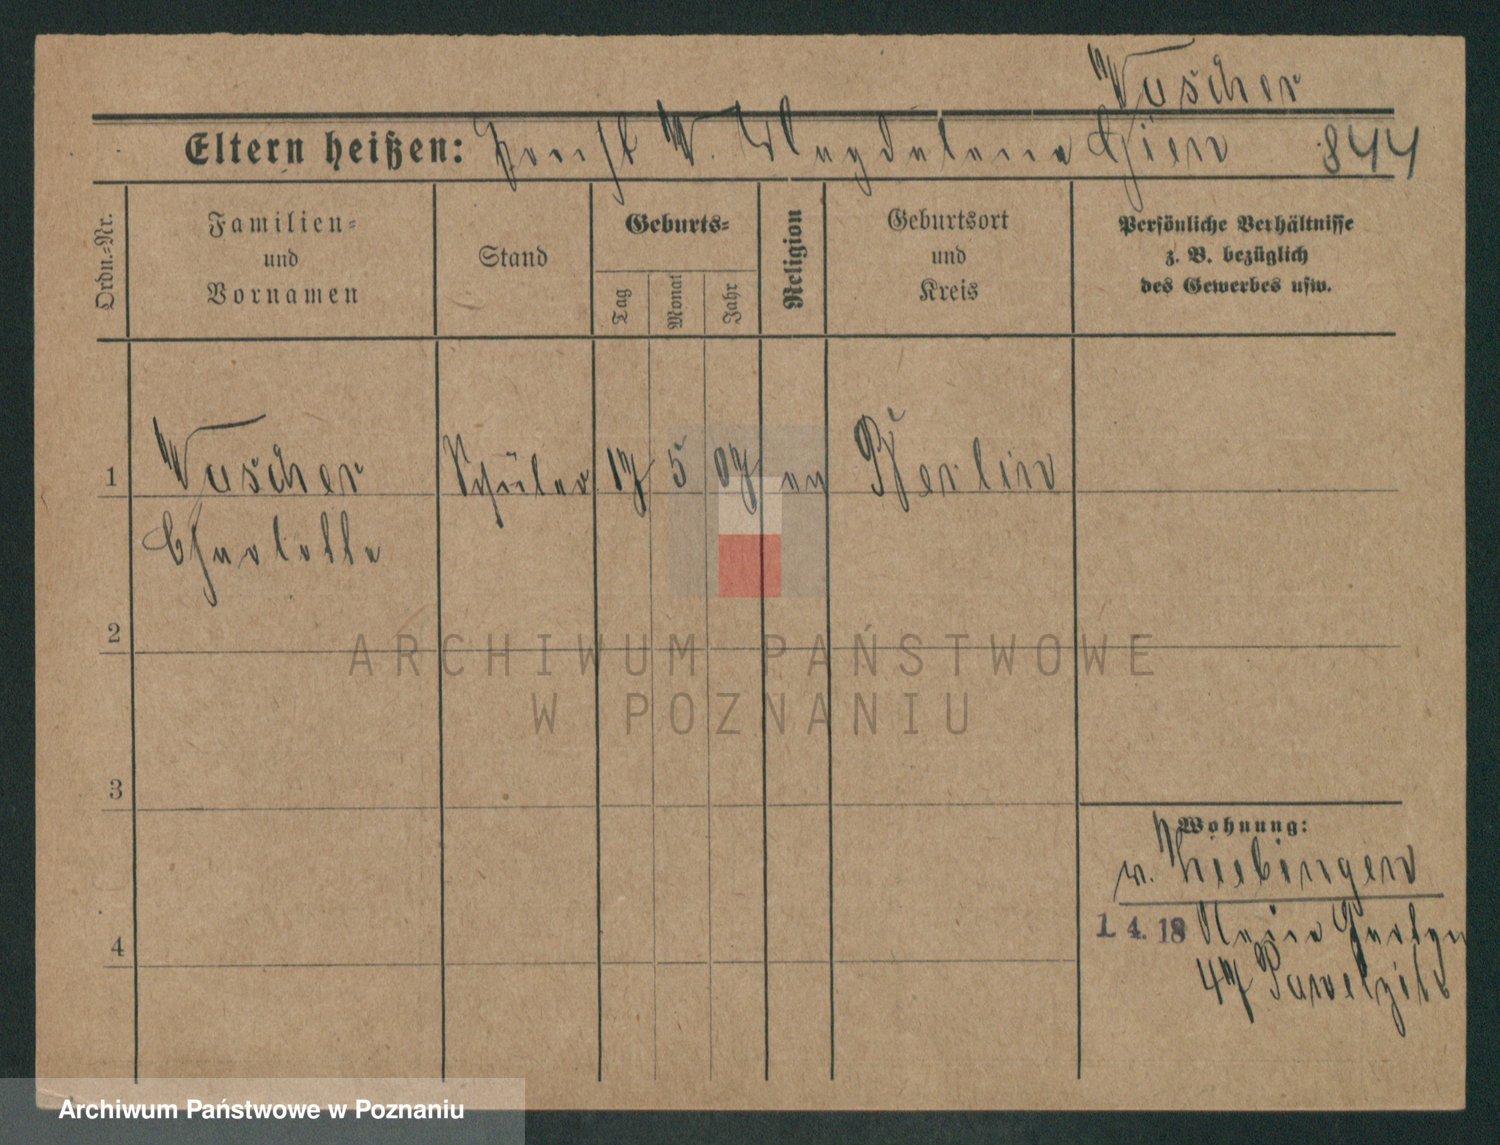 Wuscher
Eltern heißen: W. Magdalena 844
Ordn.-Nr.
Familien-
und
Vornamen
Stand
Geburts-
Tag
Monat
Jahr
Religion
Geburtsort
und
Kreis
Persönliche Verhältnisse
z. B. bezüglich
des Gewerbes usw.
1 Wuscher Schüler 17 5 07 ev Berlin
Charlotte
2
3
4
Wohnung:
v.
1. 4. 18
47
ARCHIWUM PAŃSTWOWE
W POZNANIU
Archiwum Państwowe w Poznaniu